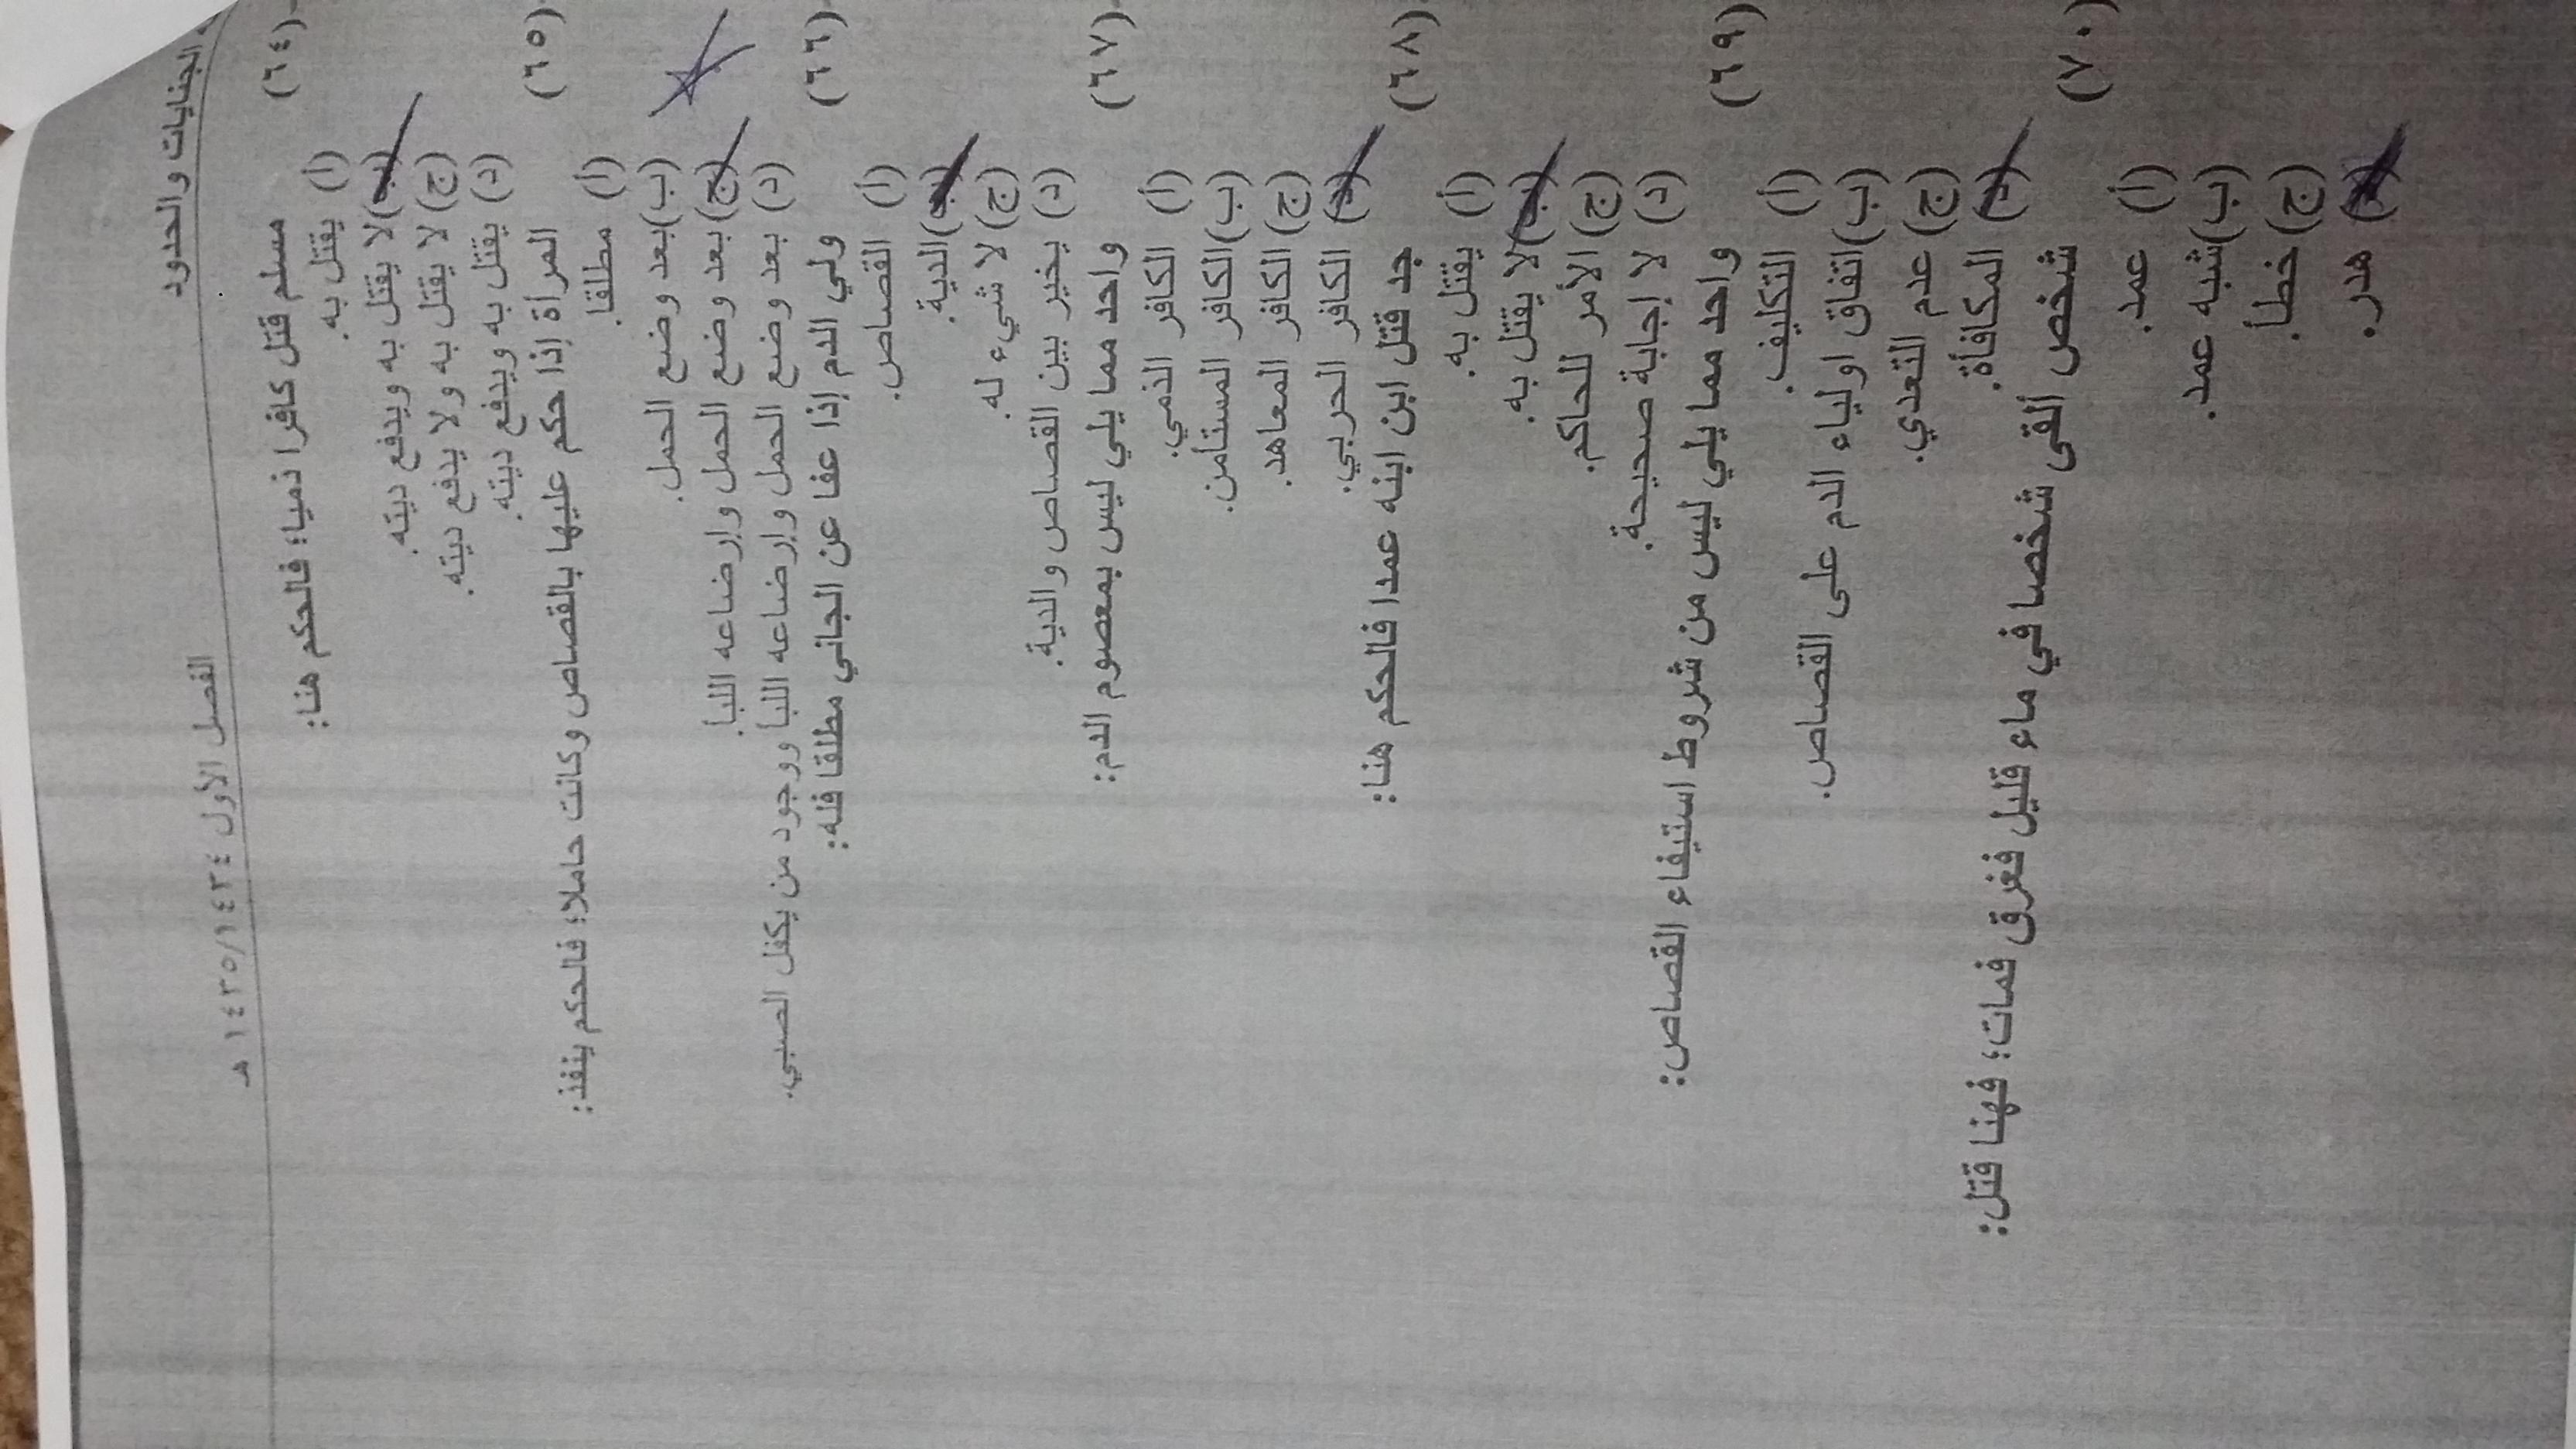 الجنايات والحدود
الفصل الأول ١٤٣٥/١٤٣٤ هـ
(٦٤) مسلم قتل كافرا ذميا؛ فالحكم هنا:
(أ) يقتل به.
(ب) لا يقتل به ويدفع ديته.
(ج) لا يقتل به ولا يدفع ديته.
(د) يقتل به ويدفع ديته.
(٦٥) المرأة إذا حكم عليها بالقصاص وكانت حاملا؛ فالحكم ينفذ:
(أ) مطلقا.
(ب) بعد وضع الحمل.
(ج) بعد وضع الحمل وإرضاعه اللبأ.
(د) بعد وضع الحمل وإرضاعه اللبأ ووجود من يكفل الصبي.
(٦٦) ولي الدم إذا عفا عن الجاني مطلقا فله:
(أ) القصاص.
(ب) الدية.
(ج) لا شيء له.
(د) يخير بين القصاص والدية.
(٦٧) واحد مما يلي ليس بمعصوم الدم:
(أ) الكافر الذمي.
(ب) الكافر المستأمن.
(ج) الكافر المعاهد.
(د) الكافر الحربي.
(٦٨) جد قتل ابن ابنه عمدا فالحكم هنا:
(أ) يقتل به.
(ب) لا يقتل به.
(ج) الأمر للحاكم.
(د) لا إجابة صحيحة.
(٦٩) واحد مما يلي ليس من شروط استيفاء القصاص:
(أ) التكليف.
(ب) اتفاق اولياء الدم على القصاص.
(ج) عدم التعدي.
(د) المكافأة.
(٧٠) شخص ألقى شخصا في ماء قليل فغرق فمات؛ فهنا قتل:
(أ) عمد.
(ب) شبه عمد.
(ج) خطأ.
(د) هدر.